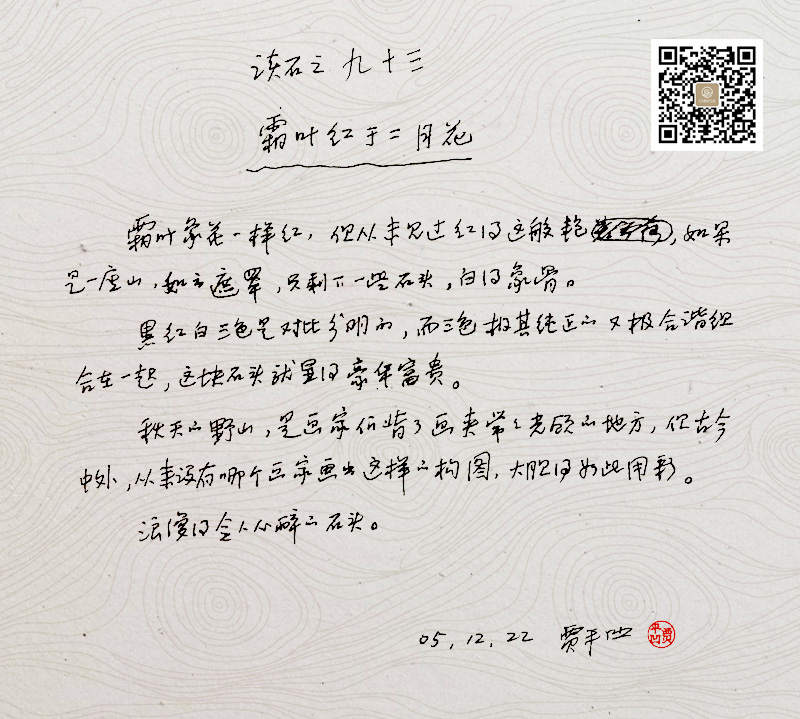 读石之九十三
霜叶红于二月花
霜叶象花一样红，但从来见过红得这般艳，如果
是一座山，如云遮罩，只剩下一些石头，白得象骨。
黑红白三色是对比分明的，而三色极其纯正的又极合谐组
合在一起，这块石头就显得豪华富贵。
秋天的野山，是画家们背了画夹常常光顾的地方，但古今
中外，从来没有哪个画家画出这样的构图，大胆得如此用彩。
浪漫得令人心醉的石头。
05，12，22 贾平凹
贾平凹